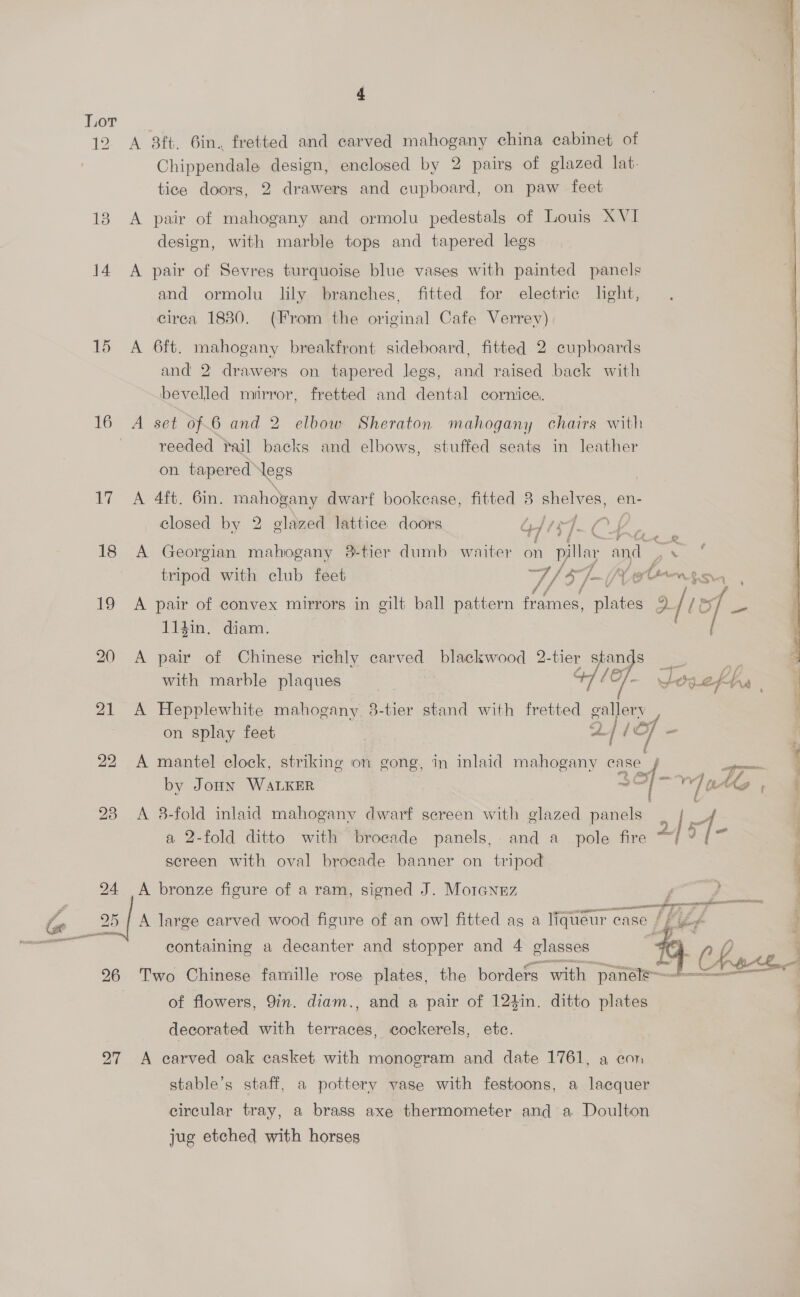 4
Lot
12 A 3ft. 6in. fretted and carved mahogany china cabinet of
Chippendale design, enclosed by 2 pairs of glazed lat-
tice doors, 2 drawers and cupboard, on paw feet
13 A pair of mahogany and ormolu pedestals of Louis XVI
design, with marble tops and tapered legs
14 A pair of Sevres turquoise blue vases with painted panels
and ormolu lily branches, fitted for electric light,
circa 1830. (From the original Cafe Verrey)
15 A 6ft. mahogany breakfront sideboard, fitted 2 cupboards
and 2 drawers on tapered legs, and raised back with
bevelled mirror, fretted and dental cornice.
16 A set of 6 and 2 elbow Sheraton mahogany chairs with
reeded rail backs and elbows, stuffed seats in leather
on tapered legs
17 A 4ft. 6in. mahogany dwarf bookcase, fitted 3 shelves, en-
closed by 2 glazed lattice doors
18 A Georgian mahogany 3-tier dumb waiter on pillar and
tripod with club feet
19 A pair of convex mirrors in gilt ball pattern frames, plates
11½in. diam.
20 A pair of Chinese richly carved blackwood 2-tier stands
with marble plaques
21 A Hepplewhite mahogany 3-tier stand with fretted gallery
on splay feet
22 A mantel clock, striking on gong, in inlaid mahogany case
by John Walker
23 A 3-fold inlaid mahogany dwarf screen with glazed panels
a 2-fold ditto with brocade panels, and a pole fire
screen with oval brocade banner on tripod
24 A bronze figure of a ram, signed J. Moignez
25 A large carved wood figure of an owl fitted as a liqueur case
containing a decanter and stopper and 4 glasses
26 Two Chinese famille rose plates, the borders with panels
of flowers, 9in. diam., and a pair of 12½in. ditto plates
decorated with terraces, cockerels, etc.
27 A carved oak casket with monogram and date 1761, a con
stable's staff, a pottery vase with festoons, a lacquer
circular tray, a brass axe thermometer and a Doulton
jug etched with horses